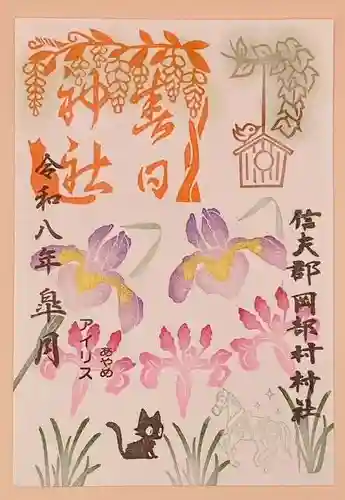 春日
神社
信夫郡岡部村村社
令和八年 皐月
アイリス
あやめ